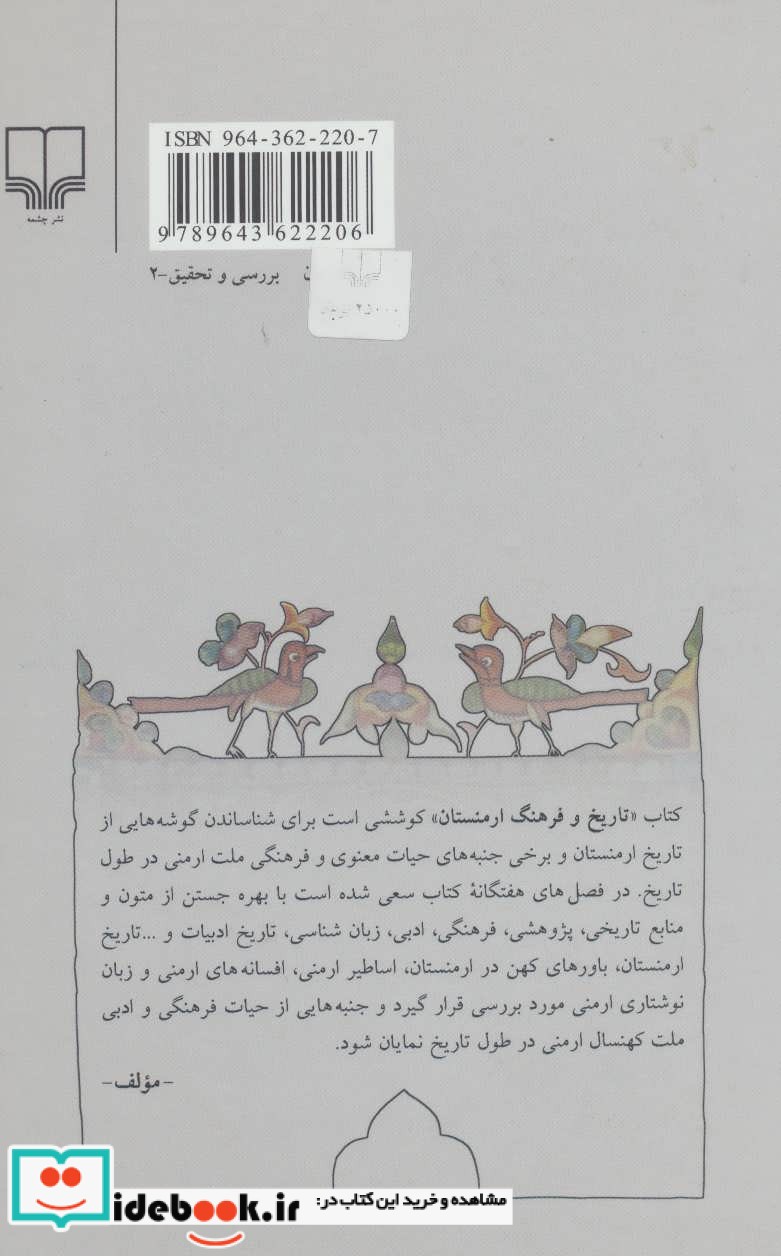 ISBN 964-362-220-7
9 789643 622206
نشر چشمه
بررسی و تحقیق-۲
۲۵۰۰۰
کتاب «تاریخ و فرهنگ ارمنستان» کوششی است برای شناساندن گوشه‌هایی از
تاریخ ارمنستان و برخی جنبه‌های حیات معنوی و فرهنگی ملت ارمنی در طول
تاریخ. در فصل‌های هفتگانهٔ کتاب سعی شده است با بهره جستن از متون و
منابع تاریخی، پژوهشی، فرهنگی، ادبی، زبان شناسی، تاریخ ادبیات و ...تاریخ
ارمنستان، باورهای کهن در ارمنستان، اساطیر ارمنی، افسانه‌های ارمنی و زبان
نوشتاری ارمنی مورد بررسی قرار گیرد و جنبه‌هایی از حیات فرهنگی و ادبی
ملت کهنسال ارمنی در طول تاریخ نمایان شود.
-مؤلف-
مشاهده و خرید این کتاب در:
idebook.ir